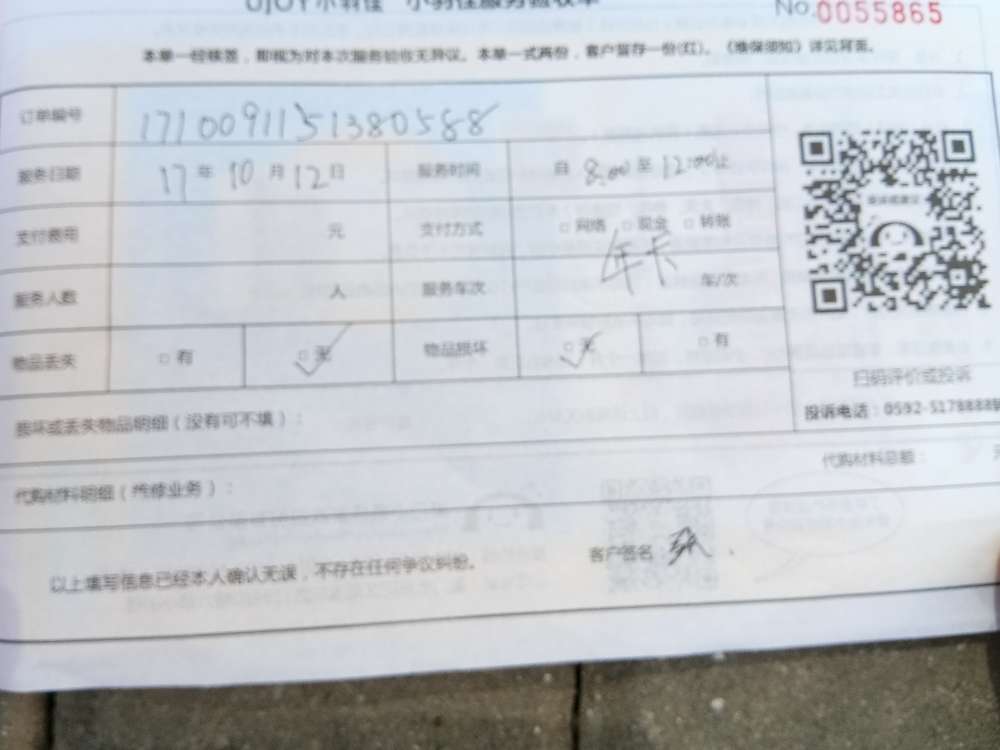 UJOY小羽佳 小羽佳服务验收单 No.0055865
本单一经核签，即视为对本次服务验收无异议。本单一式两份，客户留存一份(红)。《维保须知》详见背面。
订单编号 1710091151380588
服务日期 17年10月12日 服务时间 自8:00至12:00止
支付费用 元 支付方式 □网络 □现金 □转账
年卡
服务人数 人 服务车次 车/次
物品丢失 □有 □无 物品损坏 □无 □有
扫码评价或投诉
投诉电话：0592-5178888
损坏或丢失物品明细（没有可不填）：
代购材料明细（维修业务）： 代购材料总额：
以上填写信息已经本人确认无误，不存在任何争议纠纷。 客户签名：